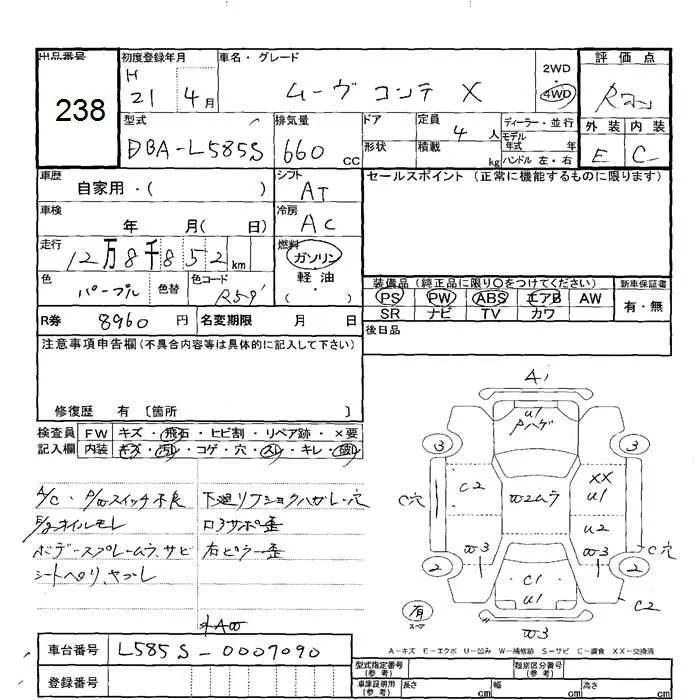 出品番号 初度登録年月 車名・グレード 2WD 評価点
238 H 21 4月 ムーヴ コンテ X 4WD
外装 内装
E C
型式 排気量 ドア 定員 ディーラー・並行
DBA-L585S 660 CC 4人 モデル年式 年式
形状 積載 kg ハンドル 左・右
車歴 シフト セールスポイント (正常に機能するものに限ります)
自家用・( ) AT
車検 冷房
年 月( 日) AC
走行 燃料
12万8千852km ガソリン
軽油
色 色替 色コード ( ・ )
パープル R59
装備品(純正品に限り○をつけてください) 新車保証書
PS PW ABS エアB AW 有・無
SR ナビ TV カワ
R券 8960円 名変期限 月 日
後日品
注意事項申告欄(不具合内容等は具体的に記入して下さい)
修復歴 有 〔箇所 〕
検査員 FW キズ・飛石・ヒビ割・リペア跡・×要
記入欄 内装 キズ・汚レ・コゲ・穴・スレ・キレ・
A/C・P/Wスイッチ不良
E/gオイルモレ
ボデースプレームラ、サビ
シートヘタリ、ヤブレ
下廻リフショクハガレ・穴
コアサポ歪
右ピラー歪
外AW
A1
U1
Pハゲ
3 3
C2 W2ムラ XX
U1
C穴 U2
W3 W3 C穴
2 2
C1
U1 C2
有
スペア W3
A-キズ E-エクボ U-凹み W-補修跡 S-サビ C-腐食 XX-交換済
車台番号 L585S-0007090
登録番号
型式指定番号(参考) 類別区分番号(参考)
車庫証明用(参考) 長さ cm 幅 cm 高さ cm